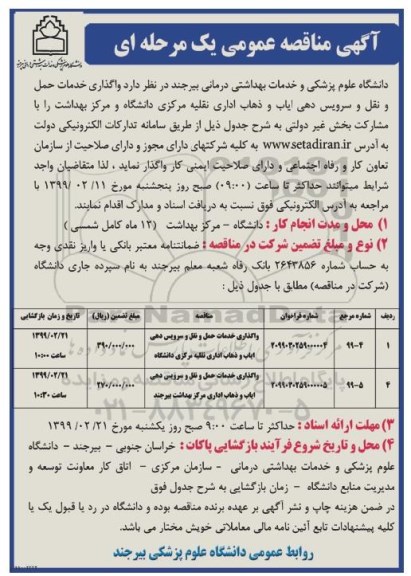 آگهی مناقصه عمومی یک مرحله ای
دانشگاه علوم پزشکی و خدمات بهداشتی درمانی بیرجند در نظر دارد واگذاری خدمات حمل
و نقل و سرویس دهی ایاب و ذهاب اداری نقلیه مرکزی دانشگاه و مرکز بهداشت را با
مشارکت بخش غیر دولتی به شرح جدول ذیل از طریق سامانه تدارکات الکترونیکی دولت
به آدرس www.setadiran.ir به کلیه شرکتهای دارای مجوز و دارای صلاحیت از سازمان
تعاون کار و رفاه اجتماعی و دارای صلاحیت ایمنی کار واگذار نماید ، لذا متقاضیان واجد
شرایط میتوانند حداکثر تا ساعت (۰۹:۰۰) صبح روز پنجشنبه مورخ ۱۱/ ۰۲/ ۱۳۹۹ با
مراجعه به آدرس الکترونیکی فوق نسبت به دریافت اسناد و مدارک اقدام نمایند.
۱) محل و مدت انجام کار : دانشگاه - مرکز بهداشت (۱۲ ماه کامل شمسی )
۲) نوع و مبلغ تضمین شرکت در مناقصه : ضمانتنامه معتبر بانکی یا واریز نقدی وجه
به حساب شماره ۲۶۴۳۸۵۶ بانک رفاه شعبه معلم بیرجند به نام سپرده جاری دانشگاه
(شرکت در مناقصه) مطابق با جدول ذیل :
ردیف شماره مرجع شماره فراخوان مناقصه مبلغ تضمین (ریال) تاریخ و زمان بازگشایی
۱ ۹۹-۴ ۲۰۹۹۰۲۰۲۵۹۰۰۰۰۰۴ واگذاری خدمات حمل و نقل و سرویس دهی ۳۹۰/۰۰۰/۰۰۰ ۱۳۹۹/۰۲/۲۱
ایاب و ذهاب اداری نقلیه مرکزی دانشگاه ساعت ۱۰:۰۰
۴ ۹۹-۵ ۲۰۹۹۰۲۰۲۵۹۰۰۰۰۰۵ واگذاری خدمات حمل و نقل و سرویس دهی ۲۷۰/۰۰۰/۰۰۰ ۱۳۹۹/۰۲/۲۱
ایاب و ذهاب اداری مرکز بهداشت بیرجند ساعت ۱۰:۳۰
۳) مهلت ارائه اسناد : حداکثر تا ساعت ۹:۰۰ صبح روز یکشنبه مورخ ۲۱/ ۰۲/ ۱۳۹۹
۴) محل و تاریخ شروع فرآیند بازگشایی پاکات : خراسان جنوبی - بیرجند - دانشگاه
علوم پزشکی و خدمات بهداشتی درمانی - سازمان مرکزی - اتاق کار معاونت توسعه و
مدیریت منابع دانشگاه - زمان بازگشایی به شرح جدول فوق
در ضمن هزینه چاپ و نشر آگهی بر عهده برنده مناقصه بوده و دانشگاه در رد یا قبول یک یا
کلیه پیشنهادات تابع آئین نامه مالی معاملاتی خویش مختار می باشد.
روابط عمومی دانشگاه علوم پزشکی بیرجند